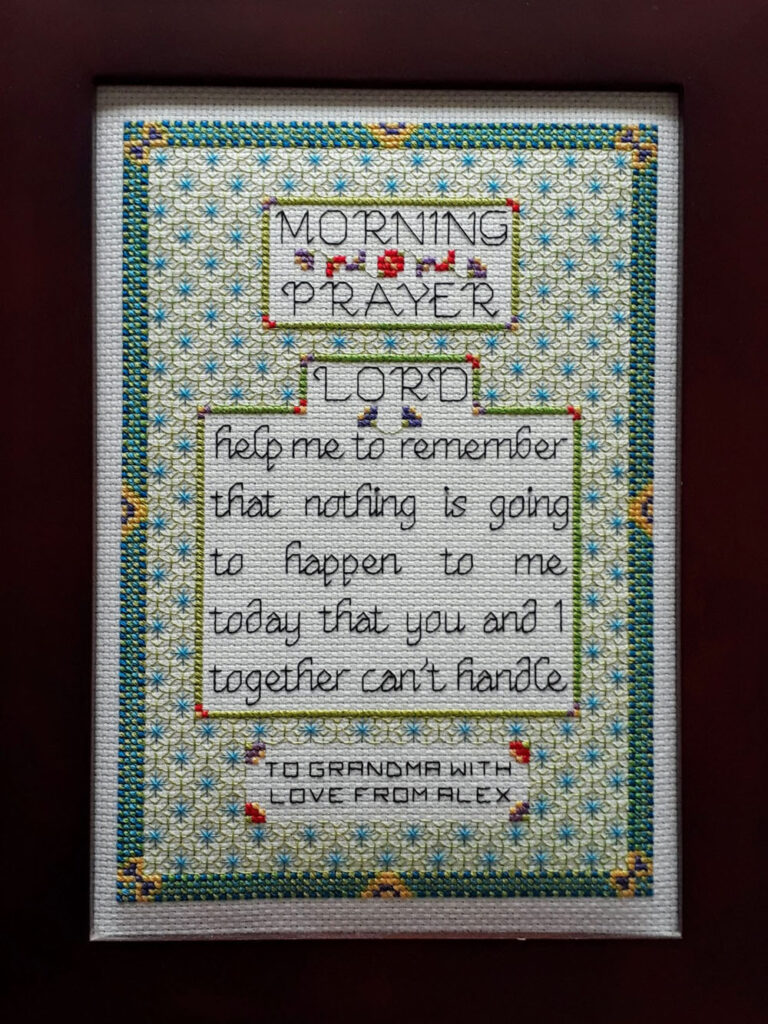 MORNING
PRAYER
LORD
help me to remember
that nothing is going
to happen to me
today that you and I
together can't handle
TO GRANDMA WITH
LOVE FROM ALEX